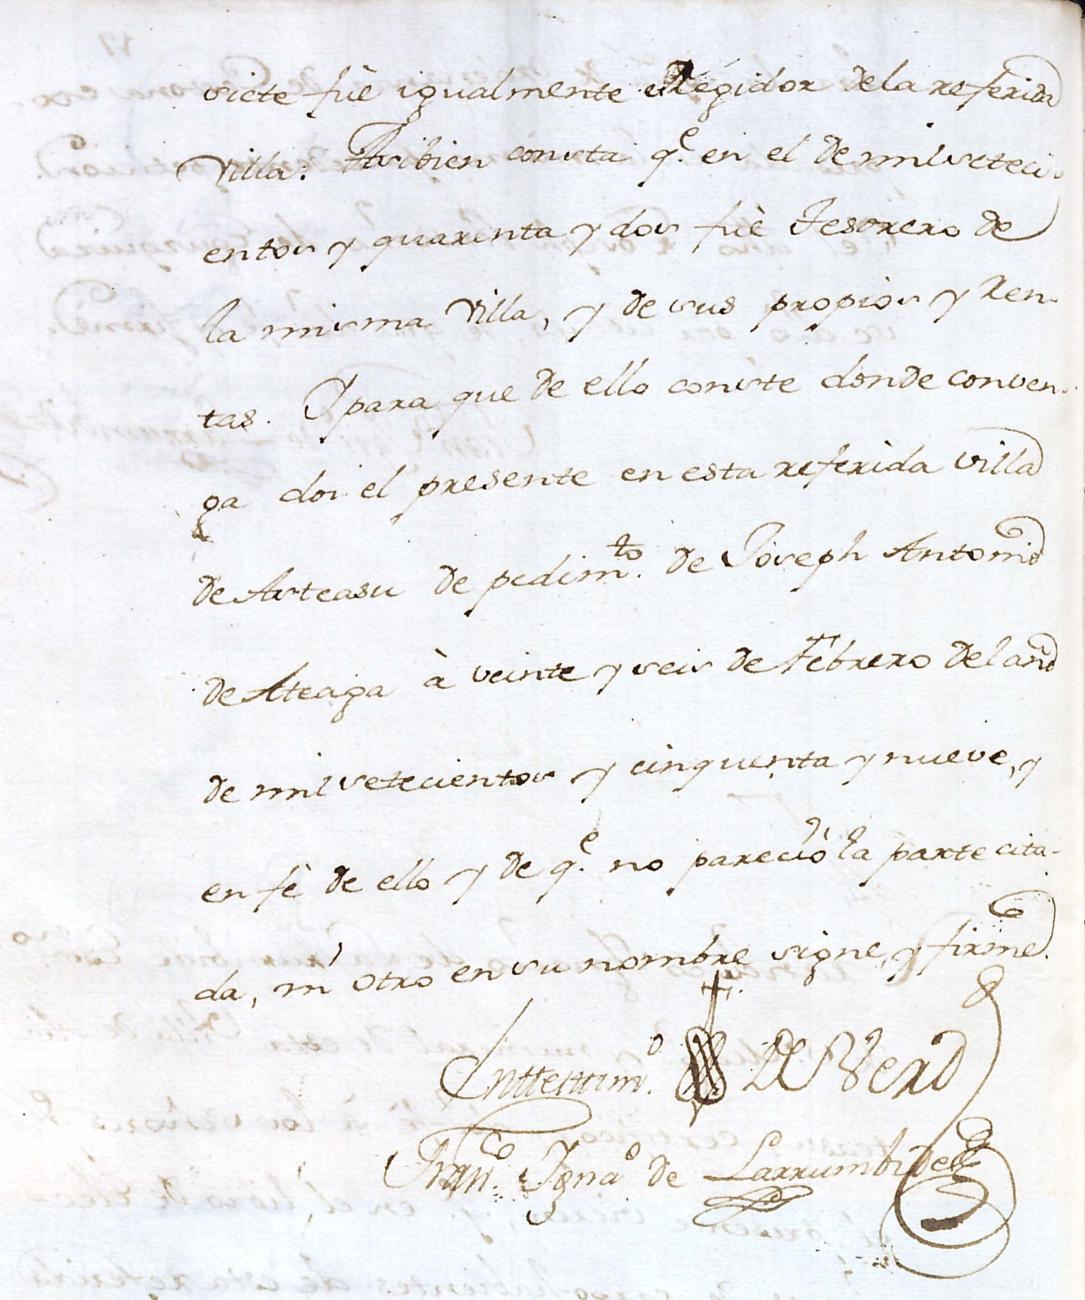 siete fuè igualmente Regidor dela referida
Villa: Assibien consta q.e en el de mil seteci-
entos y quarenta y dos fuè Tesorero de
la misma Villa, y de sus propios y Ren-
tas. I para que de ello conste donde conven-
ga doi el presente en esta referida Villa
de Asteasu de pedim.to de Joseph Antonio
de Ateaga à veinte y seis de Febrero del año
de mil setecientos y cinquenta y nueve, y
en fè de ello y de q.e no pareciò la parte cita-
da, ni otro en su nombre signe, y firmé.
Enttesttim.o De Verd
Fran.co Igna.o de Larrumbide